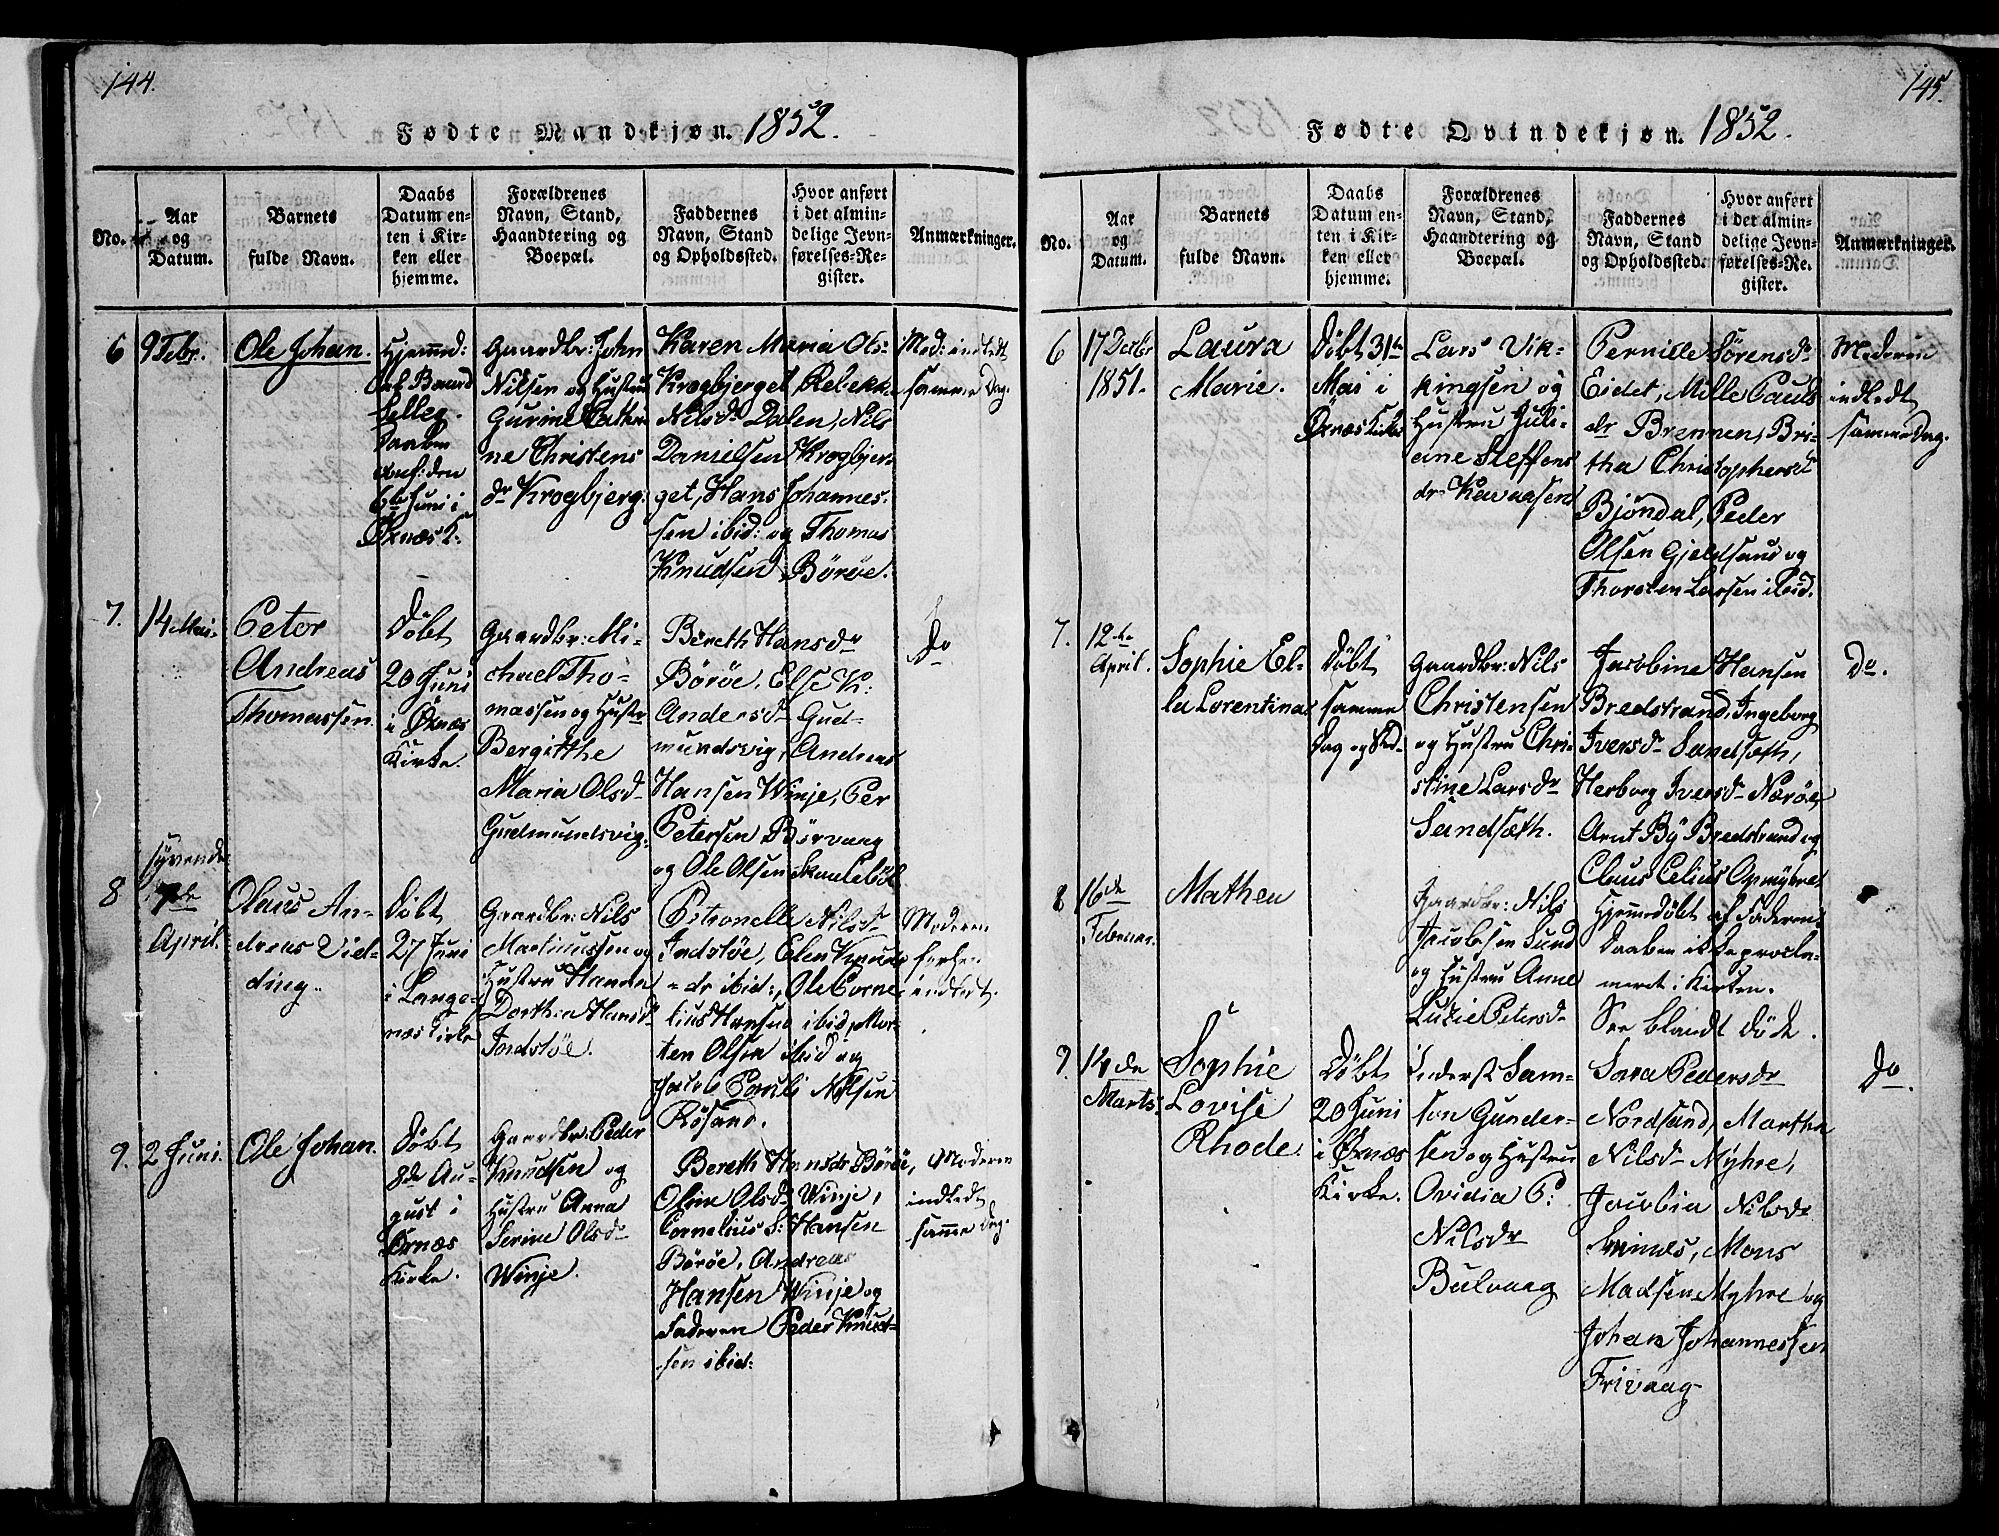 144.
Fødte Mandkjøn. 1852.
No.
Aar
og
Datum.
Barnets
fulde Navn.
Daabs
Datum en-
ten i Kir-
ken eller
hjemme.
Forældrenes
Navn, Stand,
Haandtering og
Boepæl.
Faddernes
Navn, Stand
og Opholdssted.
Hvor anført
i det almin-
delige Jevn-
førelses-Re-
gister.
Anmærkninger.
6
9 Febr.
Ole Johan.
Hjemmed:
Daaben
den
6te Juni i
Ørnæs K.
Gaardbr: John
Nilsen og Hustru
Gurine Cathri
ne Christens
dr Krogbjerg.
Karen Maria Ols:
Krogbjerget, Rebekk
Nilsdr Dalen, Nils
Danielsen Krogbjer-
get, Hans Johannes-
sen ibid: og Thomas
Knudsen Børøe.
Mod: indledt
samme Dag.
7.
14 Mai.
Peter
Andreas
Thomassen.
Døbt
20 Juni
i Ørnæs
Kirke.
Gaardbr: Mi-
chael Tho-
massen og Hustr
Bergitthe
Maria Olsd
Gudmundsvig.
Bereth Hansdr
Børøe, Else K:
Andersdr Gud-
mundsvig, Andreas
Hansen Winje, Per
Petersen Børvaag
og Ole Olsen Skaaleböl
Do
8
syvende
7de
April.
Olaus An-
dreas Vid-
ding.
Døbt
27 Juni
i Lange-
næs Kirke
Gaardbr: Nils
Martinussen og
Hustru Hanna
Dorthea Hansd
Indstöe.
Petronelle Nilsd
Indstøe, Elen Knuds
dr ibid:, Ole Corne
lius Hansen ibid, Mor-
ten Olsen ibid og
Jacob Pauli Nilsen
Rösand.
Moderen
forhen
indledt.
9.
2 Juni.
Ole Johan.
Døbt
8de Au-
gust i
Ørnæs
Kirke.
Gaardbr: Peder
Knudsen og
Hustru Anna
Serine Olsd
Winje.
Bereth Hansdr Börøe,
Oline Olsd Winje,
Cornelius S: Hansen
Börøe, Andreas
Hansen Winje og
Faderen Peder Knud-
sen ibid:
Moderen
indledt
samme Dag.
145.
Fødte Qvindekjøn. 1852.
No.
Aar
og
Datum.
Barnets
fulde Navn.
Daabs
Datum en-
ten i Kir-
ken eller
hjemme.
Forældrenes
Navn, Stand,
Haandtering og
Boepæl.
Faddernes
Navn, Stand
og Opholdssted.
Hvor anført
i det almin-
delige Jevn-
førelses-Re-
gister.
Anmærkninger.
6
17 Decbr
1851.
Laura
Marie.
Døbt 31te
Mai i
Ørnæs Kirke
Lars Vik-
kingsen og
Hustru Juli-
ane Steffens
dr
Pernille Sörensdr
Eidet, Mille Pauls
dr Brennen, Bri-
tha Christophersdr
Björndal, Peder
Olsen Gjeldsund og
Thorsten Larsen ibid.
Moderen
indledt
samme Dag.
7.
12te
April.
Sophie El-
la Lorentina
Døbt
samme
Dag og Sted
Gaardbr: Nils
Christensen
og Hustru Chri
stine Larsdr
Sandsæth.
Jacobine Hansen
Bredstrand, Ingeborg
Iversdr Sandsæth,
Herborg Iversd Nærøe,
Arnt By Bredstrand og
Claus Celius Opmyhre
Do.
8
16de
Februar.
Mathea
Gaardbr: Nils
Jacobsen Sund
og Hustru Anne
Lucie Petersd
Hjemmedøbt af Faderen
Daaben ikke procla-
meret i Kirken.
See blandt døde.
9.
14de
Marts.
Sophie
Lovise
Rhode
Døbt
20 Juni
i Ørnæs
Kirke.
Inderst Sam-
son Gunder-
sen og Hustru
Ovidia P:
Nilsdr
Bulvaag
Sara Pedersdr
Nordsand, Martha
Nilsd Myhre,
Jacobia Nilsdr
Mons
Madsen Myhre og
Johan Johannessen
Frivaag
Do.